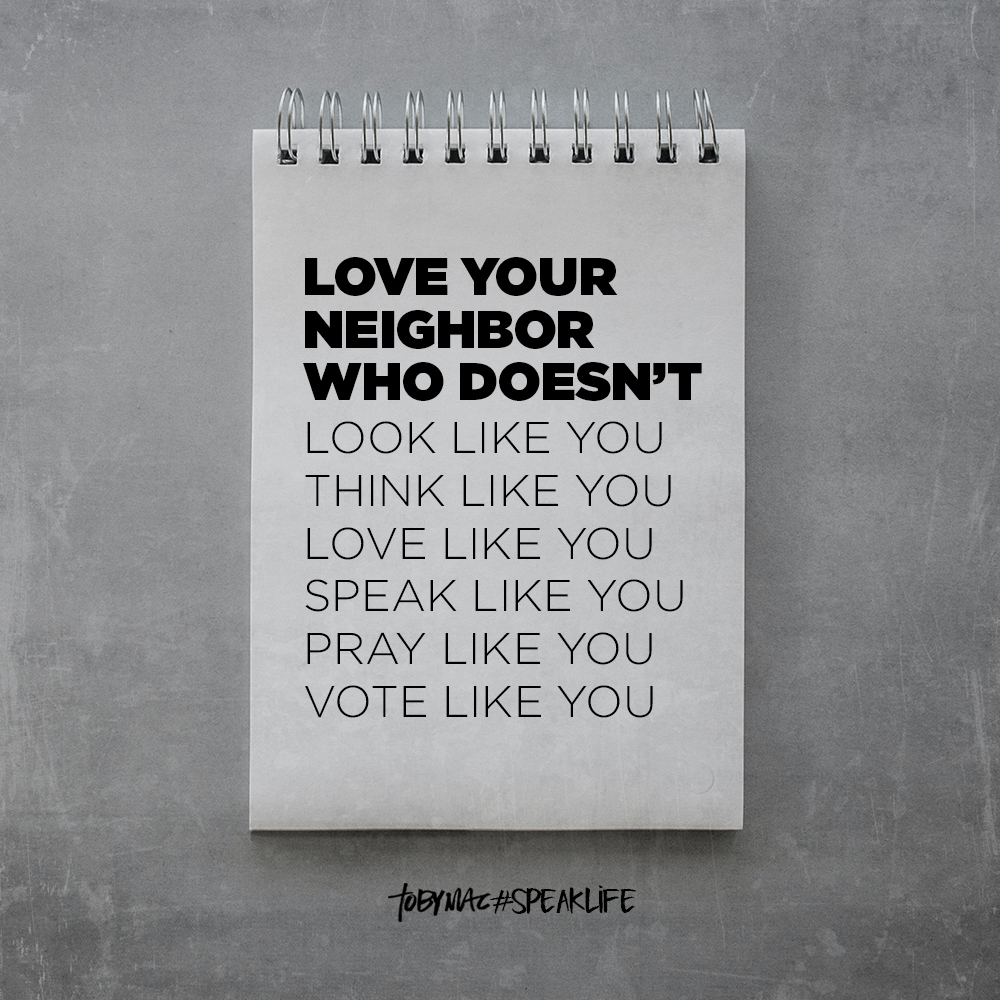 LOVE YOUR
NEIGHBOR
WHO DOESN’T
LOOK LIKE YOU
THINK LIKE YOU
LOVE LIKE YOU
SPEAK LIKE YOU
PRAY LIKE YOU
VOTE LIKE YOU
tOBYMAC#SPEAKLiFE